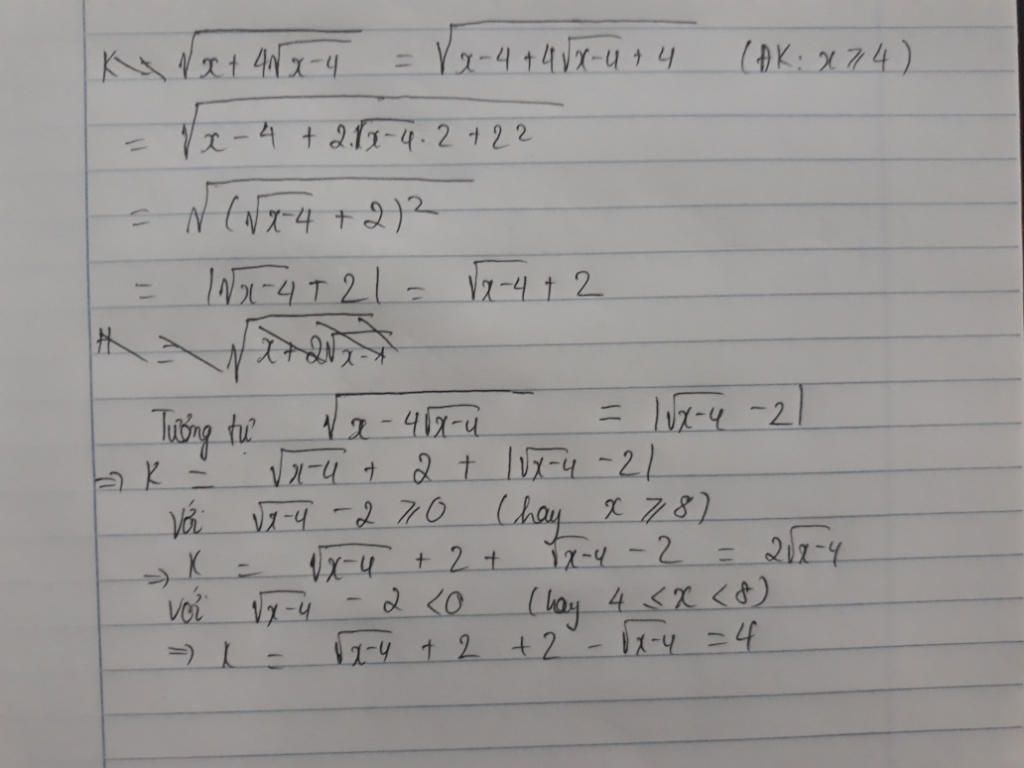 K = √(x + 4√(x-4)) = √(x-4 + 4√(x-4) + 4) (ĐK: x ≥ 4)
= √(x - 4 + 2.√(x-4) . 2 + 2²)
= √((√(x-4) + 2)²)
= |√(x-4) + 2| = √(x-4) + 2
= √(x + 2√(x-
Tương tự √(x - 4√(x-4)) = |√(x-4) - 2|
⇒ K = √(x-4) + 2 + |√(x-4) - 2|
Với √(x-4) - 2 ≥ 0 (hay x ≥ 8)
⇒ K = √(x-4) + 2 + √(x-4) - 2 = 2√(x-4)
Với √(x-4) - 2 < 0 (hay 4 ≤ x < 8)
⇒ K = √(x-4) + 2 + 2 - √(x-4) = 4